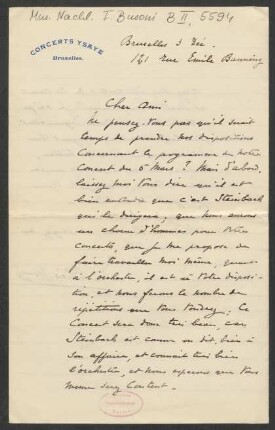 Mus. Nachl. F. Busoni B II, 5594
CONCERTS YSAYE
Bruxelles.
Bruxelles 3 Déc.
141 rue Emile Banning
Cher Ami
Ne pensez-vous pas qu'il serait
temps de prendre nos dispositions
concernant le programme de notre
Concert du 6 Mars ? Mais d'abord,
laissez moi vous dire qu'il est
bien entendu que c'est Steinbach
qui le dirigera ; que nous aurons
un chœur d'hommes pour votre
Concerto, que je me propose de
faire travailler moi même, quant
à l'orchestre, il est à votre disposi-
tion, et nous ferons le nombre de
répétitions que vous voudrez ; Ce
Concert sera donc très beau, car
Steinbach est comme on dit, bien à
son affaire, et connait très bien
l'orchestre, et nous espérons que vous
même serez content.